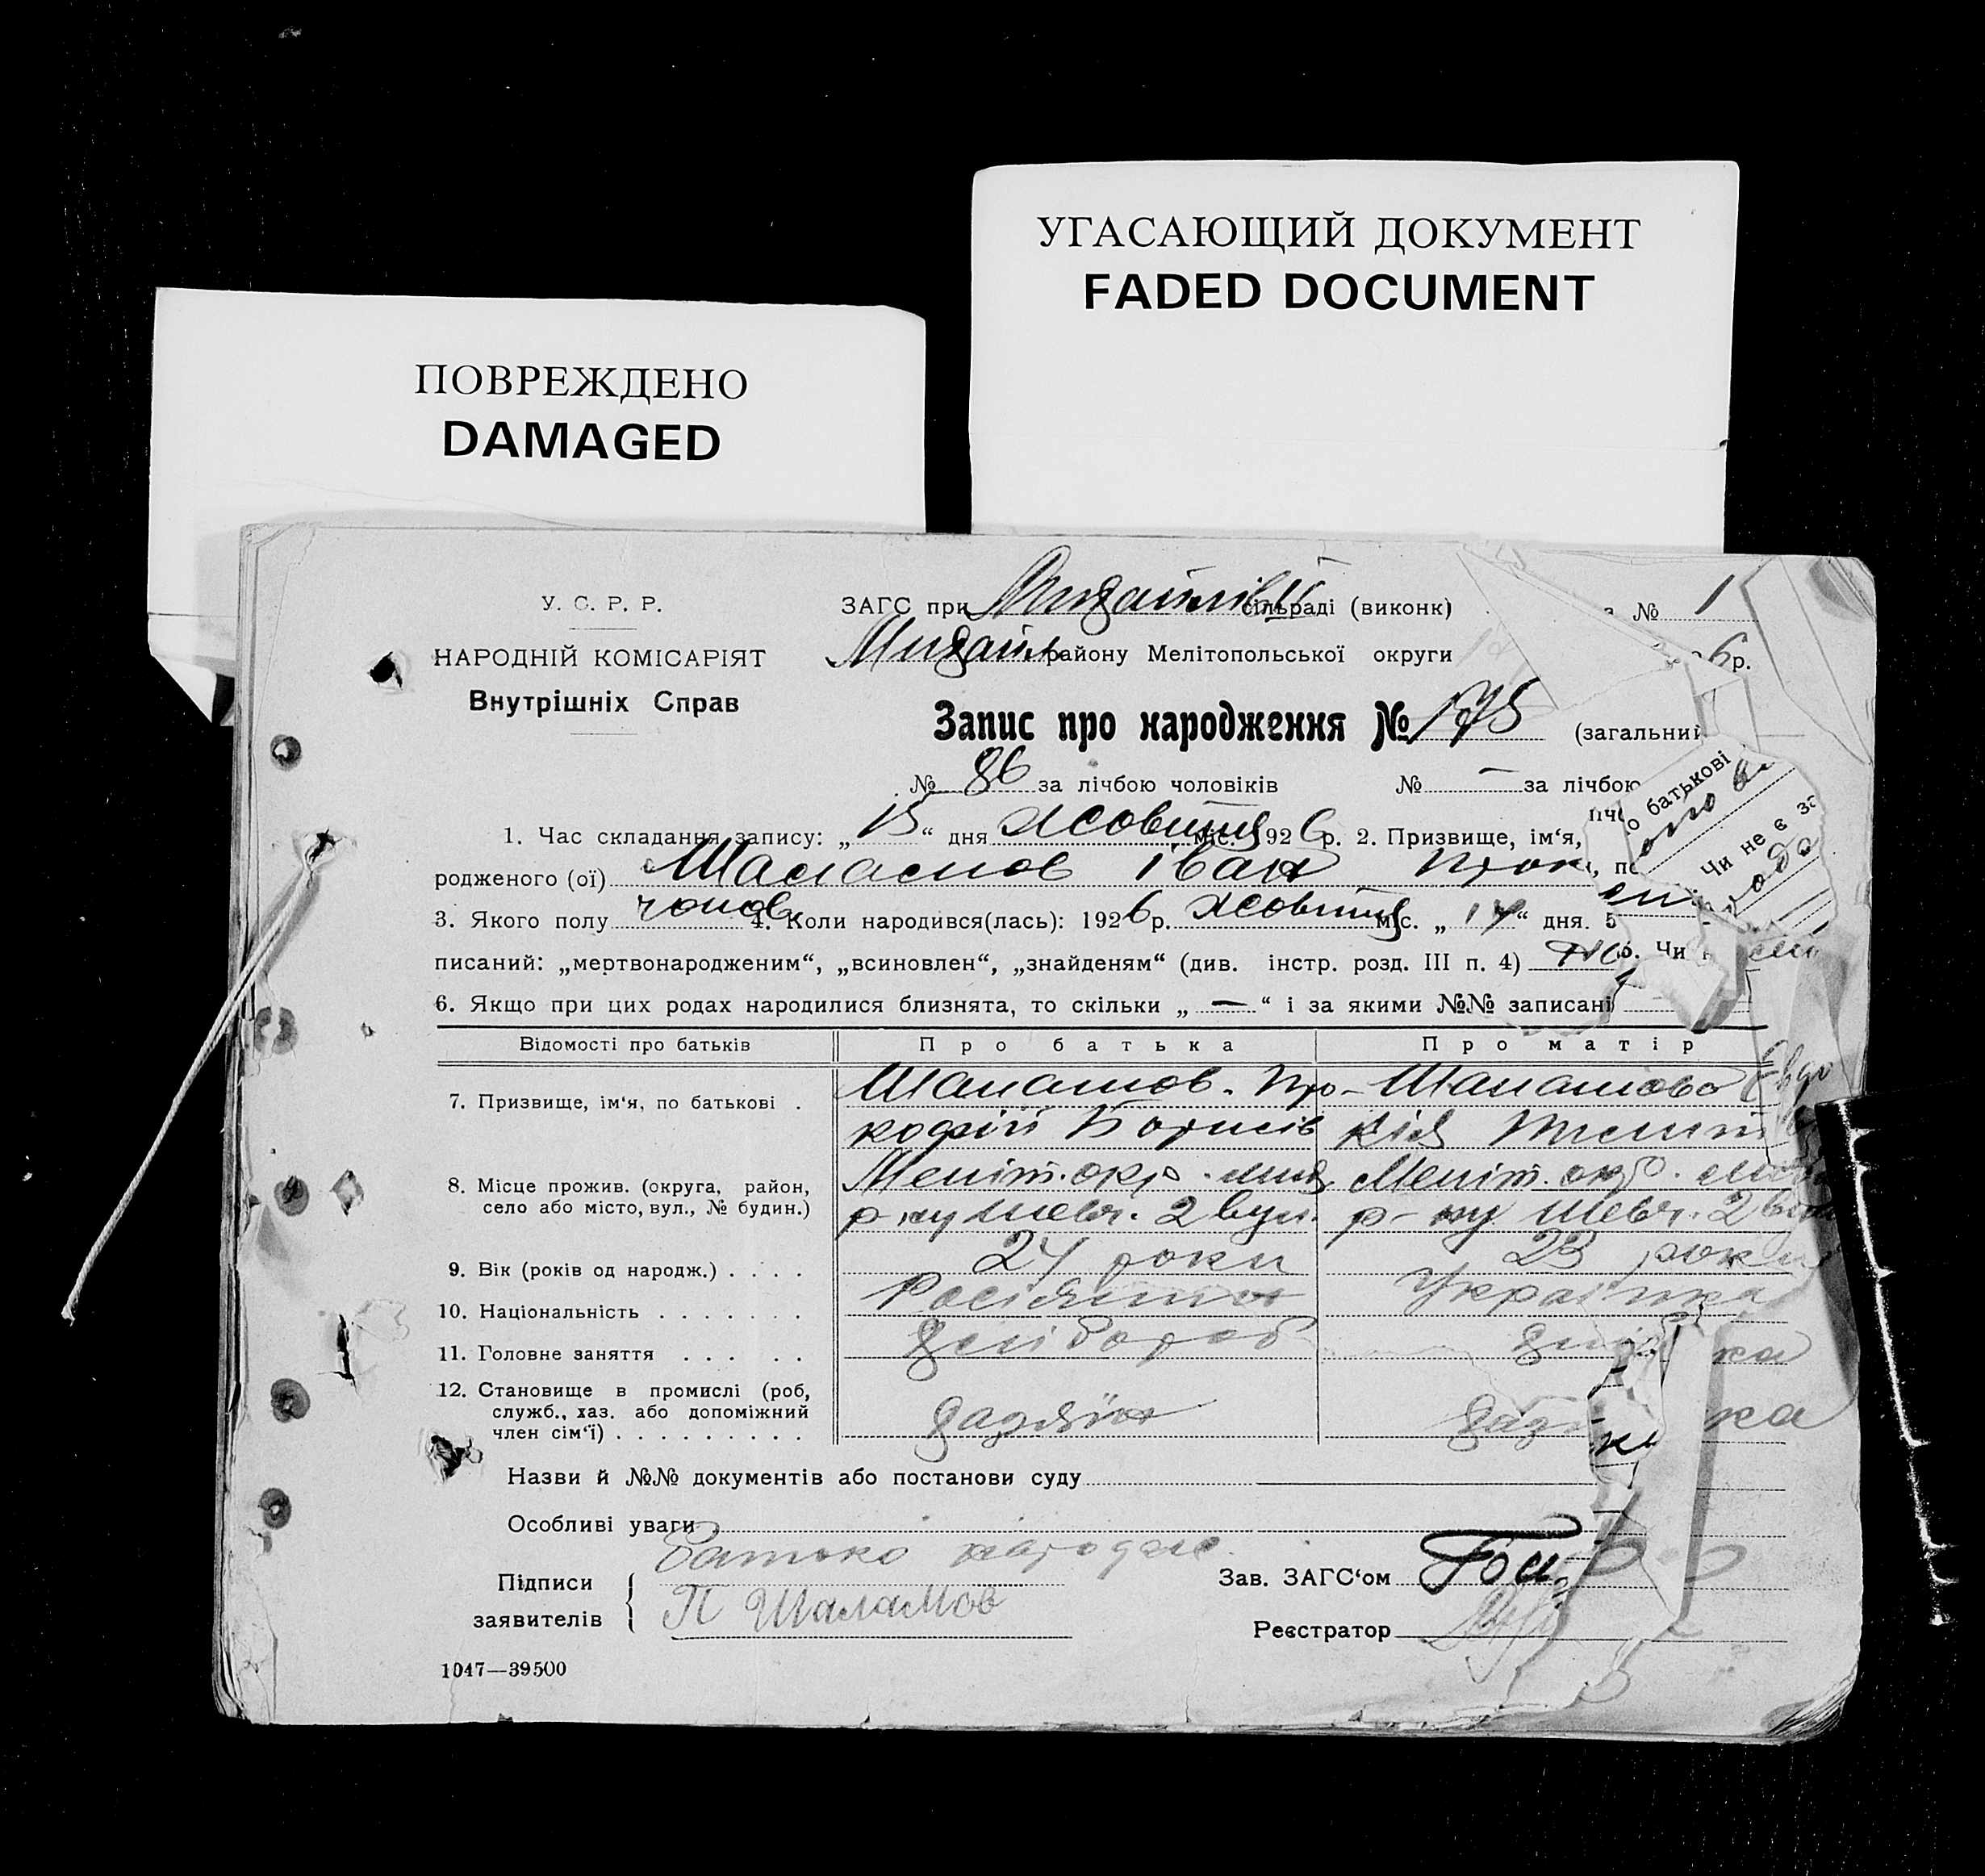 УГАСАЮЩИЙ ДОКУМЕНТ
FADED DOCUMENT
ПОВРЕЖДЕНО
DAMAGED
У. С. Р. Р.
НАРОДНІЙ КОМІСАРІЯТ
Внутрішніх Справ
ЗАГС при Михайлівій сільраді (виконк) № 1
Михайл району Мелітопольської округи 6 р.
Запис про народження № 175 (загальний
№ 86 за лічбою чоловіків № — за лічбою
о батькові
Чи не є за
1. Час складання запису: „15“ дня Жовтня міс. 1926 р. 2. Призвище, ім‘я,
родженого (ої) Шаламов Іван Прок
3. Якого полу чолов 4. Коли народився(лась): 1926 р. Жовтня міс. „14“ дня. 5
писаний: „мертвонародженим“, „всиновлен“, „знайденям“ (див. інстр. розд. III п. 4)
6. Якщо при цих родах народилися близнята, то скільки „—“ і за якими №№ записані
Відомості про батьків Про батька Про матір
7. Призвище, ім‘я, по батькові . Шаламов. Про- Шаламова Євдо
кофій Борисів кія
8. Місце прожив. (округа, район, Меліт. окр. мих Меліт. окр.
село або місто, вул., № будин.) р-ну Шевч. 2 вул. р-ну Шевч. 2 вул
9. Вік (років од народж.) . . . . 24 роки 23 роки
10. Національність . . . . . . . Росіянин Українка
11. Головне заняття . . . . . хлібороб
12. Становище в промислі (роб,
служб., хаз. або допоміжний
член сім‘ї) . . . . . . . . . хазяїн ка
Назви й №№ документів або постанови суду
Особливі уваги
Батько
Підписи
заявителів
П Шаламов
Зав. ЗАГС‘ом
Реєстратор
1047—39500